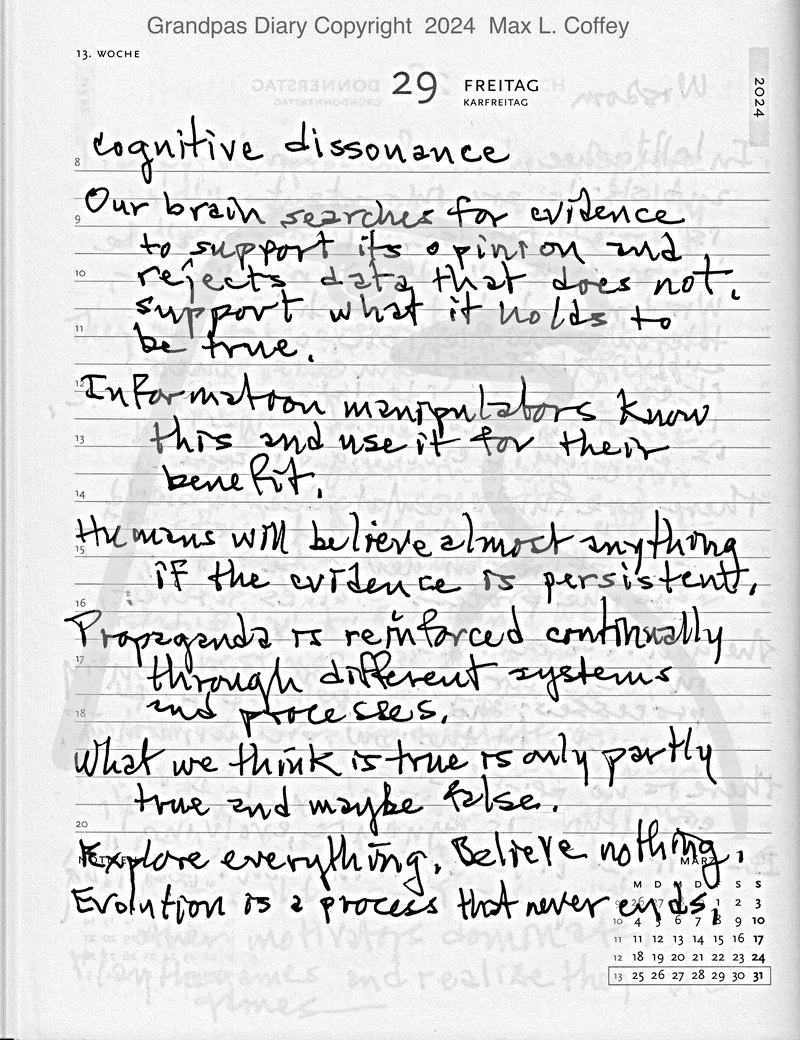 Grandpas Diary Copyright 2024 Max L. Coffey
13. WOCHE
29 FREITAG
KARFREITAG
2024
cognitive dissonance
8
Our brain searches for evidence
9
to support its opinion and
10
rejects data that does not
support what it holds to
11
be true.
12
Information manipulators know
13
this and use it for their
benefit.
14
Humans will believe almost anything
15
if the evidence is persistent.
16
Propaganda is reinforced continually
17
through different systems
18
and processes.
What we think is true is only partly
true and maybe false.
20
Explore everything. Believe nothing.
NOTIZEN
MÄRZ
Evolution is a process that never ends.
M D M D F S S
1 2 3
10 4 5 6 7 8 9 10
11 11 12 13 14 15 16 17
12 18 19 20 21 22 23 24
13 25 26 27 28 29 30 31